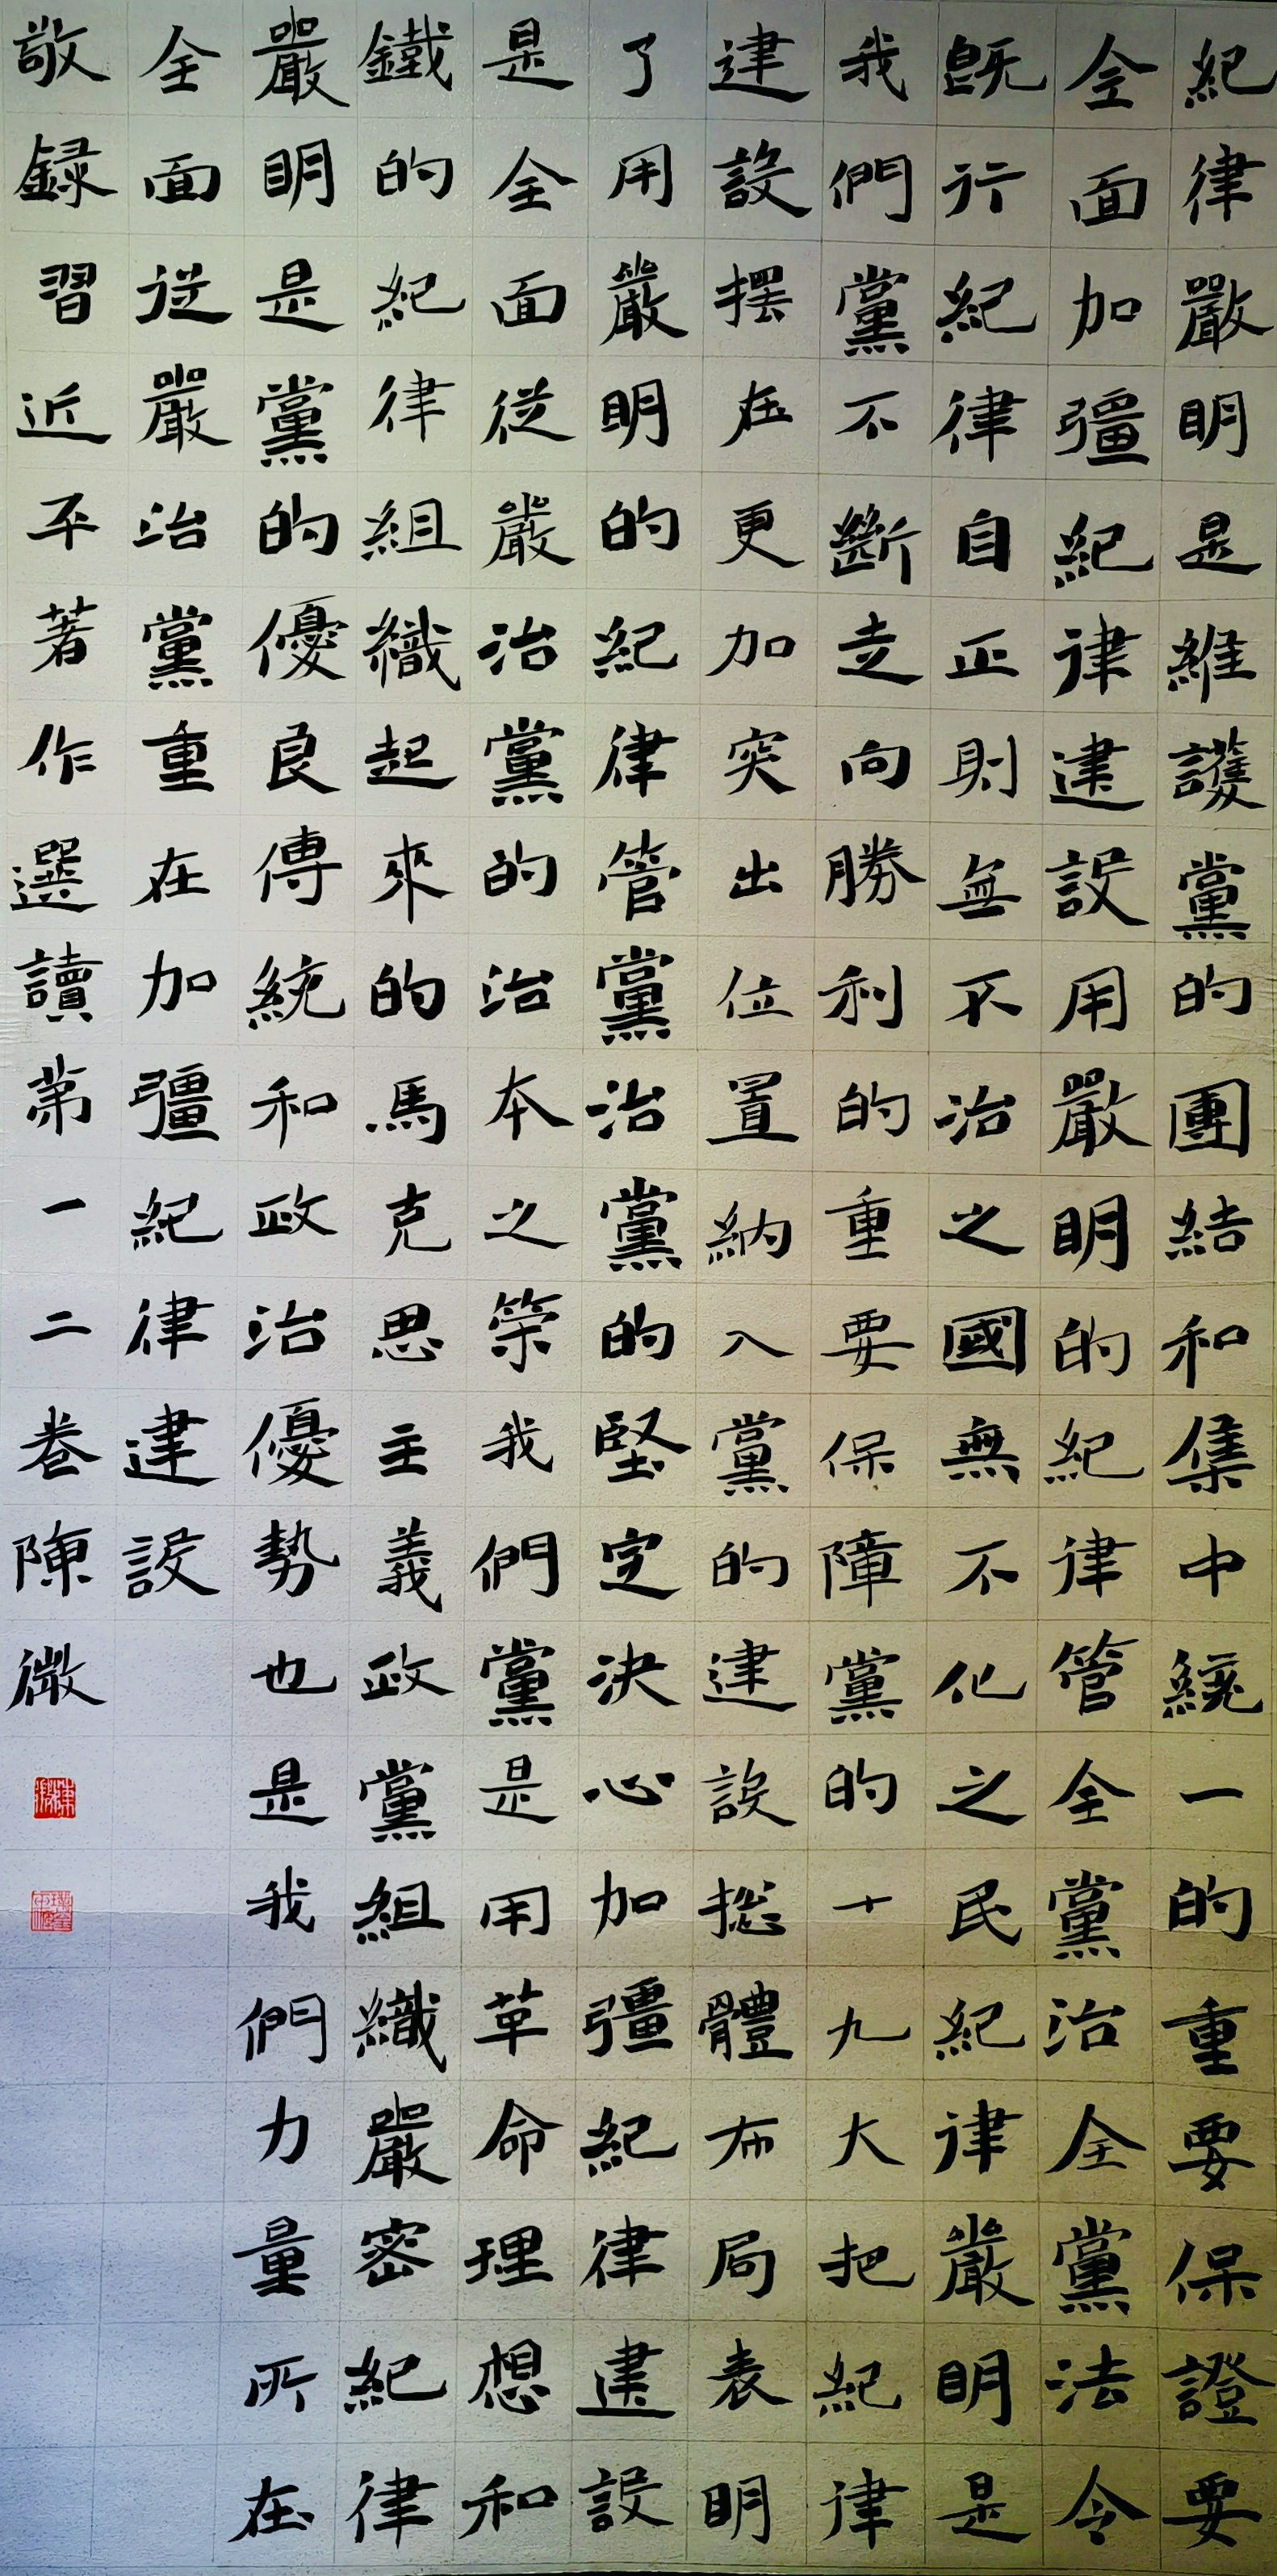 紀律嚴明是維護黨的團結和集中統一的重要保證要
全面加彊紀律建設用嚴明的紀律管全黨治全黨法令
既行紀律自正則無不治之國無不化之民紀律嚴明是
我們黨不斷走向勝利的重要保障黨的十九大把紀律
建設擺在更加突出位置納入黨的建設総體布局表明
了用嚴明的紀律管黨治黨的堅定決心加彊紀律建設
是全面從嚴治黨的治本之策我們黨是用革命理想和
鐵的紀律組織起來的馬克思主義政黨組織嚴密紀律
嚴明是黨的優良傳統和政治優勢也是我們力量所在
全面從嚴治黨重在加彊紀律建設
敬録習近平著作選讀第一二卷陳微